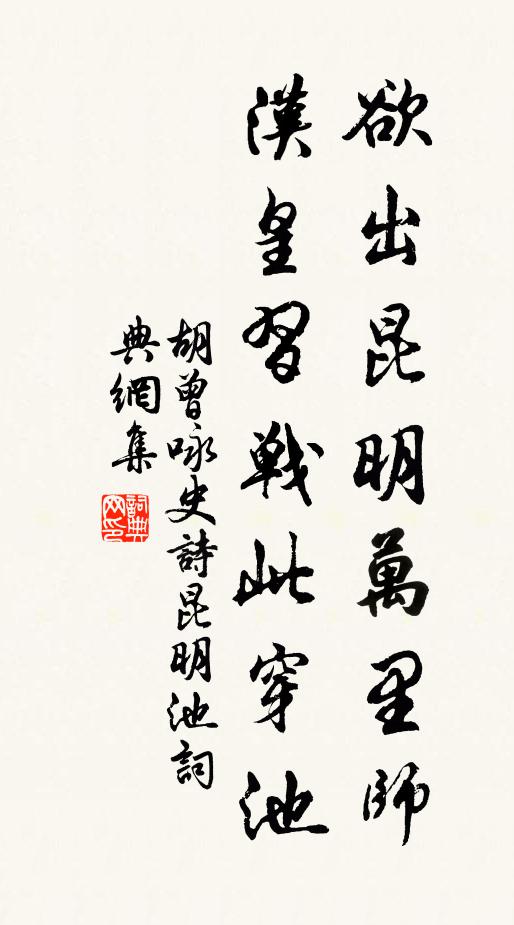 欲出昆明萬里師
漢皇習戰此穿池
胡曾咏史詩昆明池詞
典網集
詞典
网印